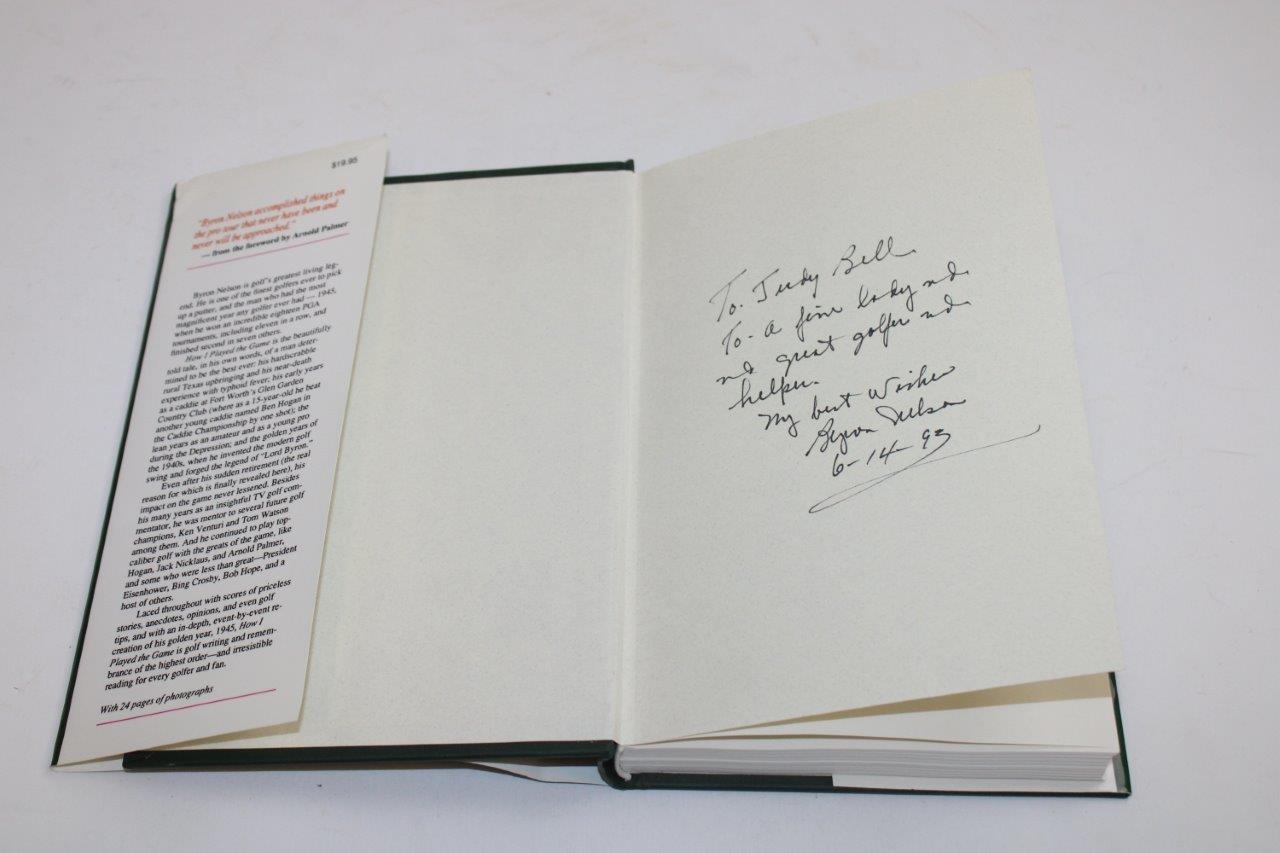 $19.95
"Byron Nelson accomplished things on
the pro tour that never have been and
never will be approached."
— from the foreword by Arnold Palmer
Byron Nelson is golf's greatest living leg-
end. He is one of the finest golfers ever to pick
up a putter, and the man who had the most
magnificent year any golfer ever had — 1945,
when he won an incredible eighteen PGA
tournaments, including eleven in a row, and
finished second in seven others.
How I Played the Game is the beautifully
told tale, in his own words, of a man deter-
mined to be the best ever: his hardscrabble
rural Texas upbringing and his near-death
experience with typhoid fever; his early years
as a caddie at Fort Worth's Glen Garden
Country Club (where as a 15-year-old he beat
another young caddie named Ben Hogan in
the Caddie Championship by one shot); the
lean years as an amateur and as a young pro
during the Depression; and the golden years of
the 1940s, when he invented the modern golf
swing and forged the legend of "Lord Byron."
Even after his sudden retirement (the real
reason for which is finally revealed here), his
impact on the game never lessened. Besides
his many years as an insightful TV golf com-
mentator, he was mentor to several future golf
champions, Ken Venturi and Tom Watson
among them. And he continued to play top-
caliber golf with the greats of the game, like
Hogan, Jack Nicklaus, and Arnold Palmer,
and some who were less than great—President
Eisenhower, Bing Crosby, Bob Hope, and a
host of others.
Laced throughout with scores of priceless
stories, anecdotes, opinions, and even golf
tips, and with an in-depth, event-by-event re-
creation of his golden year, 1945, How I
Played the Game is golf writing and remem-
brance of the highest order—and irresistible
reading for every golfer and fan.
With 24 pages of photographs
To. Judy Bell
To- a fine lady
great golfer
helper.
My best Wishes
Byron Nelson
6-14-93